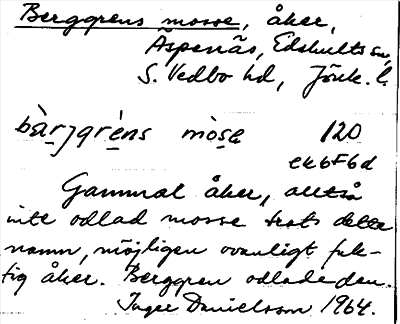 Berggrens mosse, åker,
Äspenäs, Edshults sn,
S. Vedbo hd, Jönk. l.
bàrjgréns mòsе 120
ek6F6d
Gammal åker, alltså
inte odlad mosse trots detta
namn, möjligen ovanligt fuk-
tig åker. Berggren odlade den.
Inger Danielsson 1964.